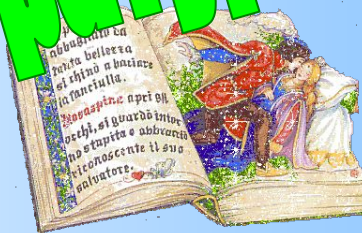 abbagliato da
tanta bellezza
si chinò a baciare
la fanciulla.
Rosaspina aprì gli
occhi, si guardò intor
no stupita e abbracciò
riconoscente il suo
salvatore.